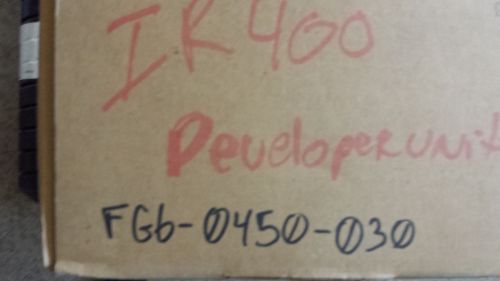 IR400
Developer unit
FG6-0450-030